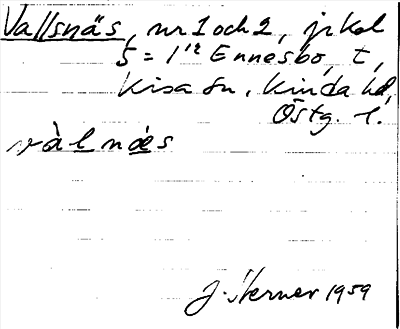 Vallsnäs, nr 1 och 2, jr kol
5 = 1/12 Ennesbo, t,
Kisa sn, Kinda hd,
Östg. l.
vàlnæs
J. Sterner 1959